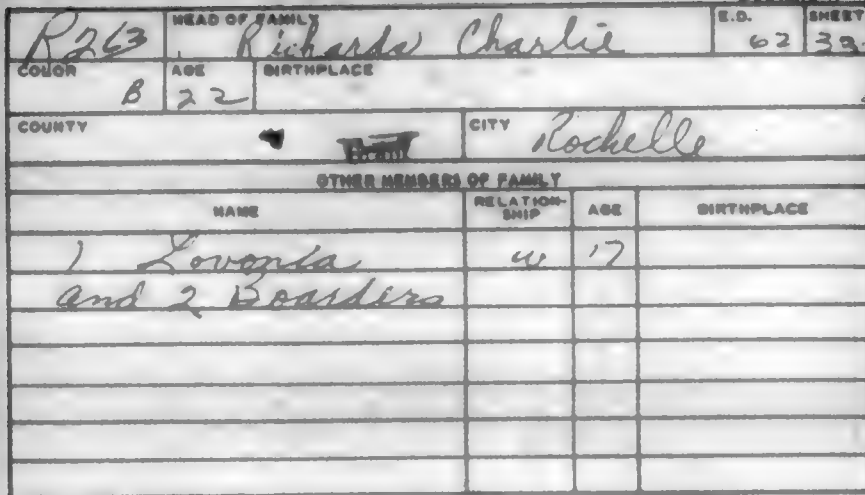 R263 HEAD OF FAMILY Richards Charlie E.D. 62 SHEET
COLOR B AGE 22 BIRTHPLACE
COUNTY CITY Rochelle
OTHER MEMBERS OF FAMILY
NAME RELATION-SHIP AGE BIRTHPLACE
1 Lovonia w 17
and 2 Boarders